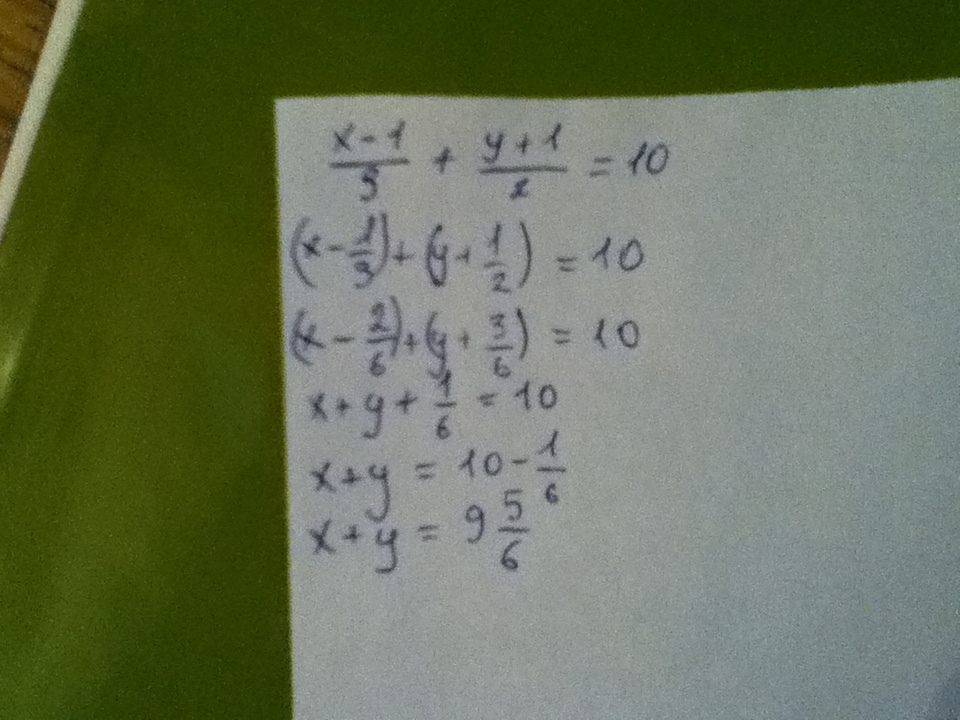 x-1/3 + y+1/2 = 10
(x-1/3)+(y+1/2) = 10
(x-2/6)+(y+3/6) = 10
x+y+1/6 = 10
x+y = 10-1/6
x+y = 9 5/6